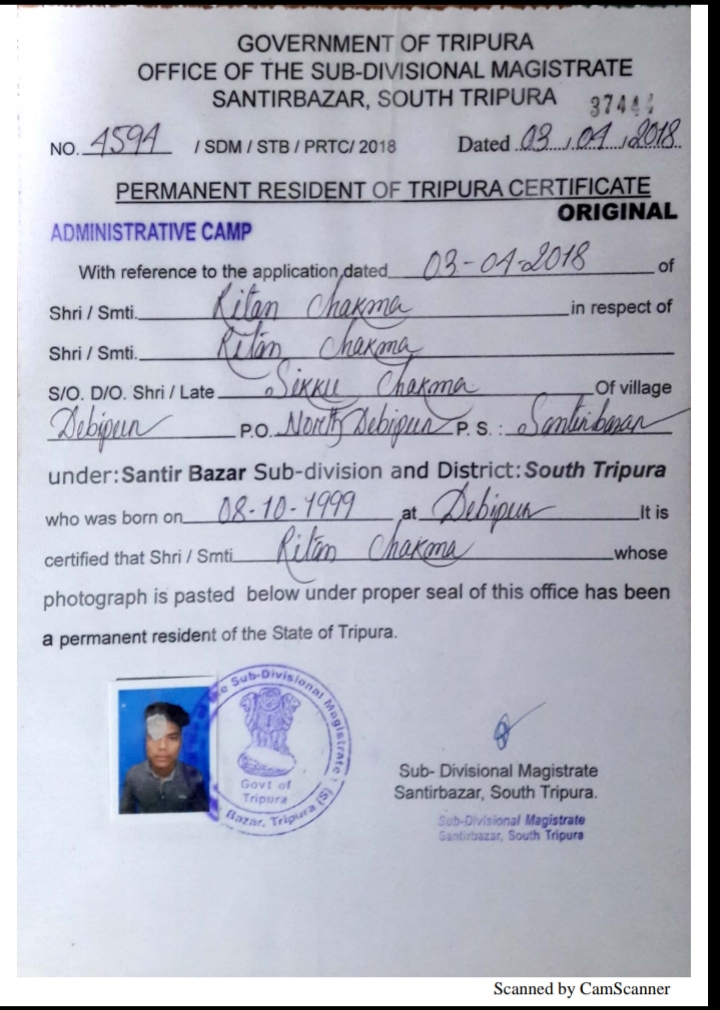 GOVERNMENT OF TRIPURA
OFFICE OF THE SUB-DIVISIONAL MAGISTRATE
SANTIRBAZAR, SOUTH TRIPURA
NO. 4594 / SDM / STB / PRTC/ 2018 Dated 03.04.2018
PERMANENT RESIDENT OF TRIPURA CERTIFICATE
ORIGINAL
ADMINISTRATIVE CAMP
With reference to the application dated 03-04-2018 of
Shri / Smti. Ritan Chakma in respect of
Shri / Smti. Ritan Chakma
S/O. D/O. Shri / Late Sikku Chakma Of village
Debipur P.O. North Debipur P. S. : Santirbazar
under: Santir Bazar Sub-division and District: South Tripura
who was born on 08-10-1999 at Debipur It is
certified that Shri / Smti. Ritan Chakma whose
photograph is pasted below under proper seal of this office has been
a permanent resident of the State of Tripura.
Sub-Divisional Magistrate
Govt of
Tripura
Bazar, Tripura (S)
Sub- Divisional Magistrate
Santirbazar, South Tripura.
Sub-Divisional Magistrate
Santirbazar, South Tripura
Scanned by CamScanner